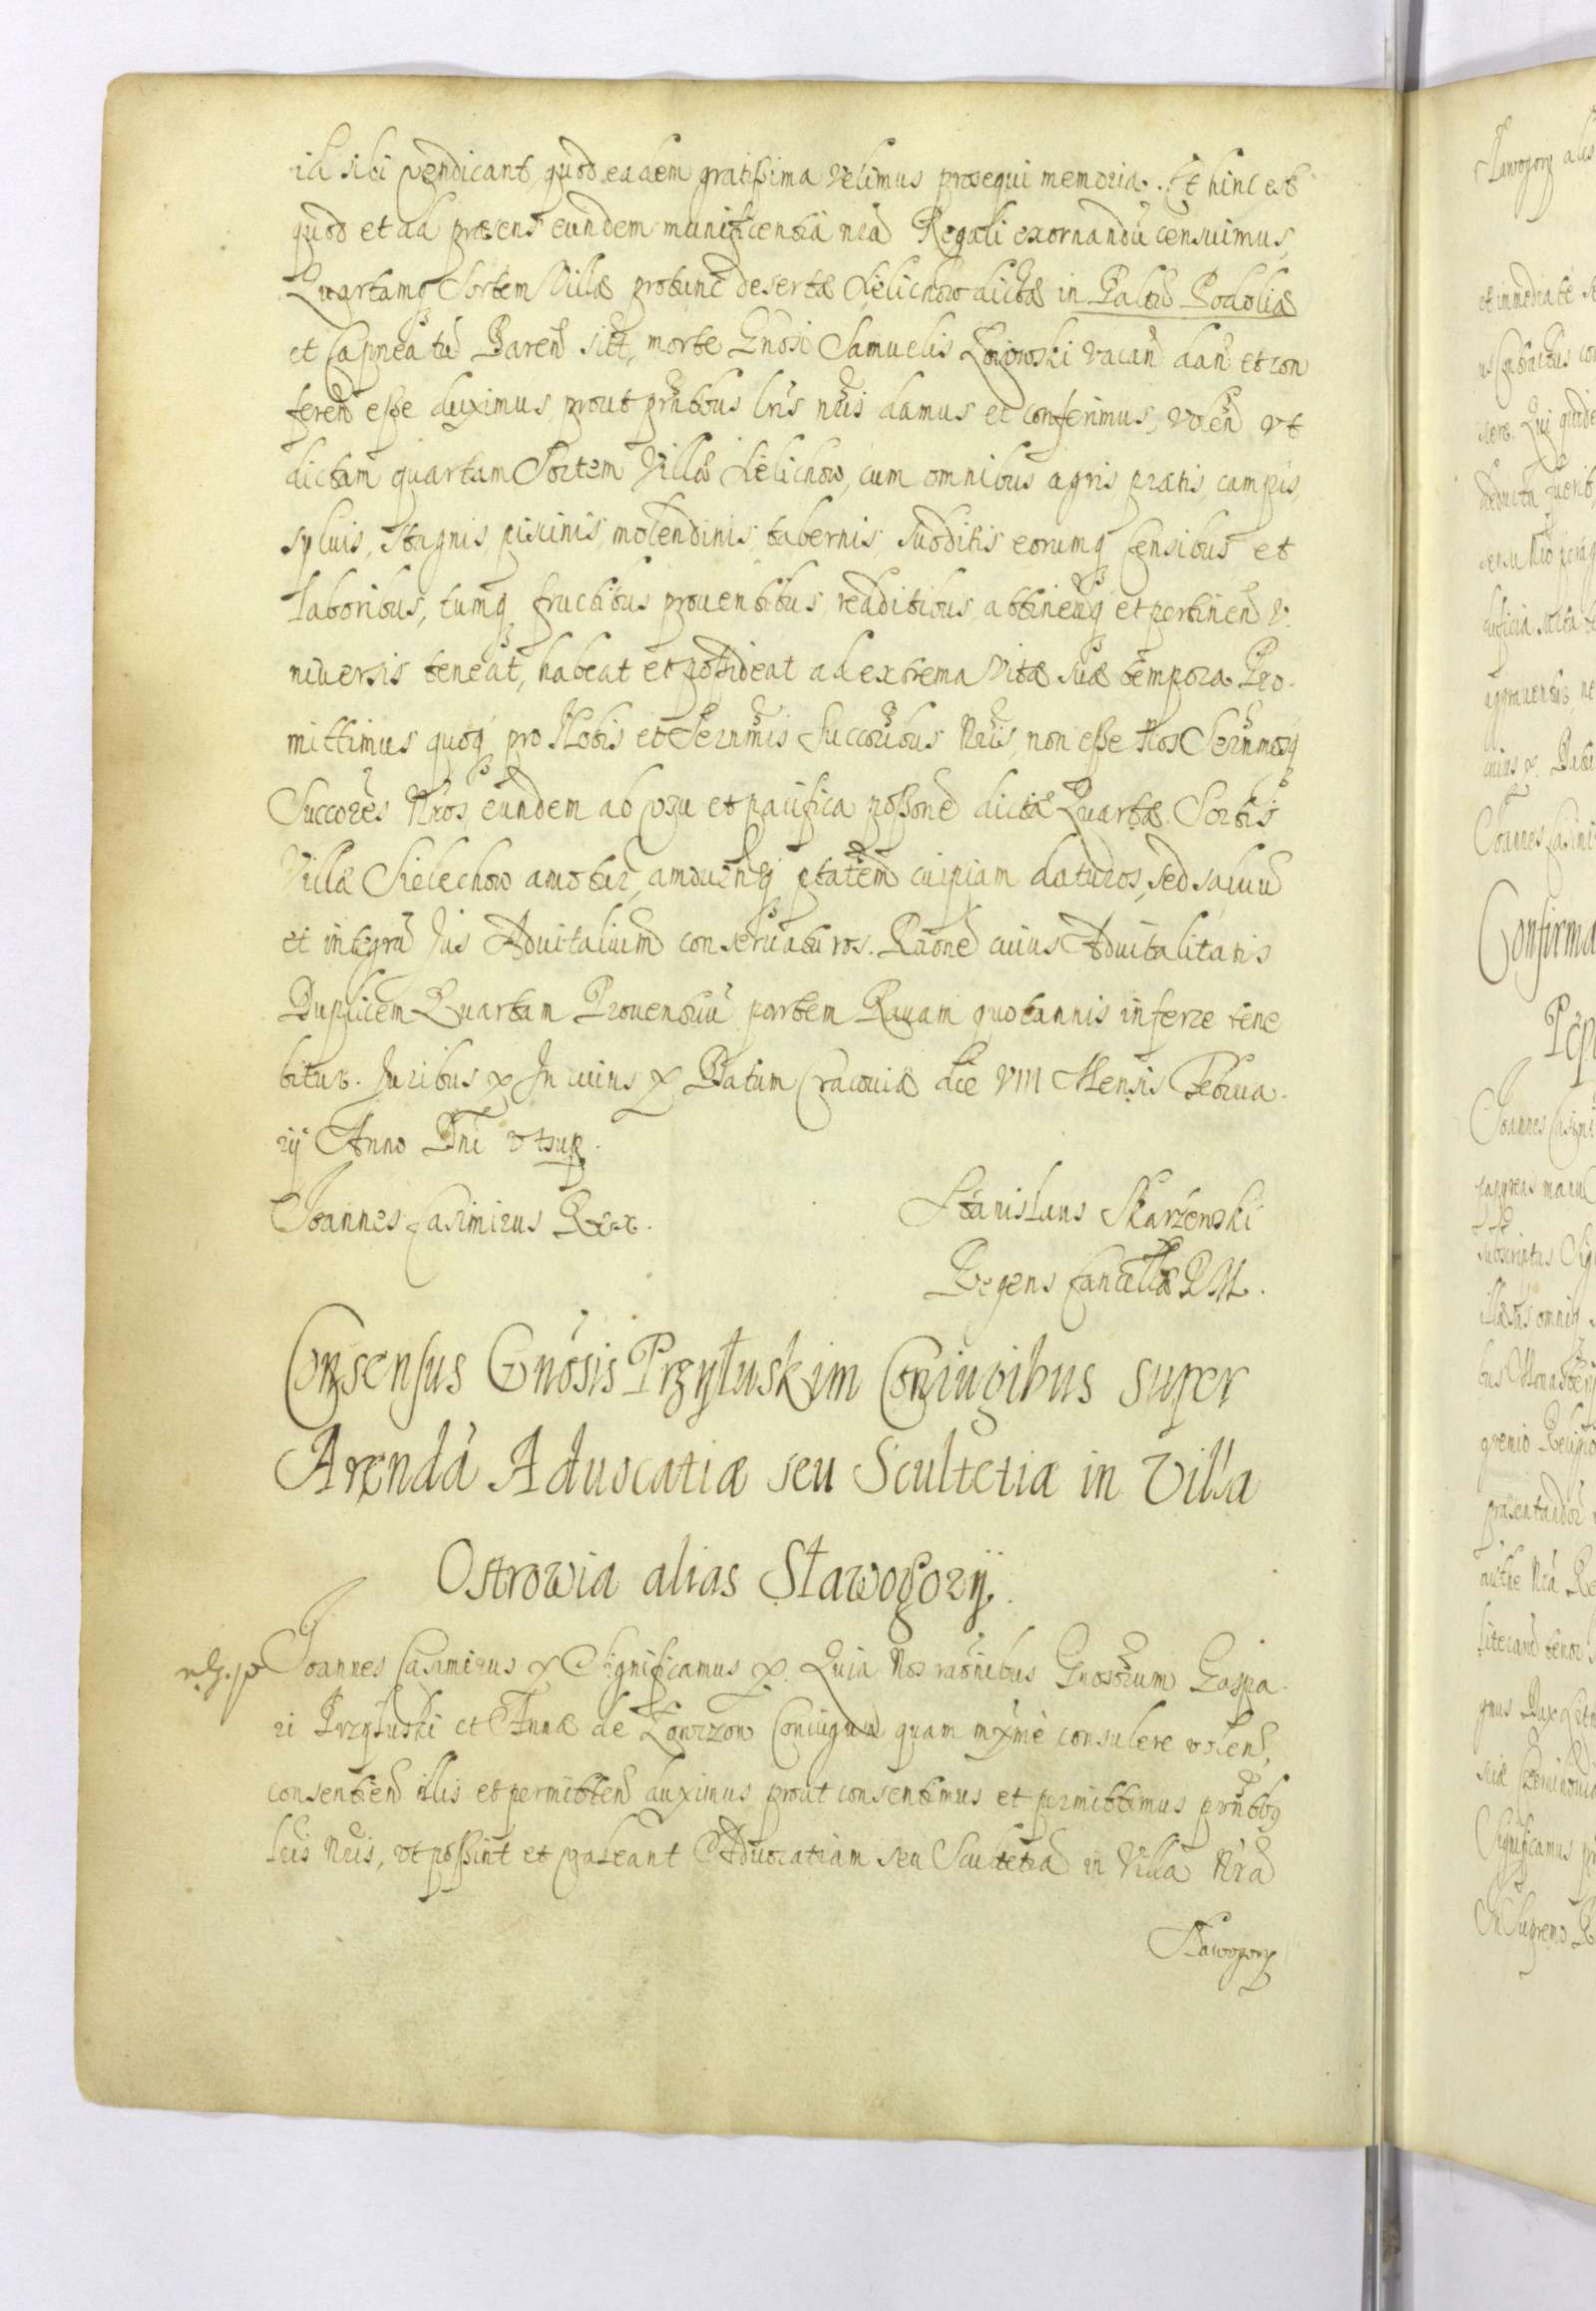 id sibi vendicant, quod eadem gratissima velimus prosequi memoria. Et hinc est
quod et ad praesens eundem munificentiâ nrâ Regali exornandũ censuimus,
Quartamq Sortem Villæ protunc desertæ Sielichow dictæ in Palttũ Podoliæ
et Capnea tũ Baren sitt, morte Gnosi Samuelis vacan dan et con
feren esse duximus, prout prntibus lris nris damus et conferimus, Volen vt
dictam quartam Sortem Villæ Sielichow, cum omnibus agris pratis, campis,
syluis, stagnis, piscinis, molendinis, tabernis, subditis eorumq censibus et
laboribus, tumq fructibus prouentibus redditibus attinen et pertinen v
niuersis teneat, habeat et possideat ad extrema vitæ suæ tempora. Pro
mittimus quoq pro Nobis et Serñmis Succoribus Nris, non esse Nos Serñmosq
Succores Nros, eundem ab vsu et pacifica possone dictæ Quartæ Sortis
Villæ Sielechow amotur, amouenq ptatem cuipiam daturos, sed saluũ
et integrũ Jus Aduitalium conseruaturos. Raone cuius Aduitalitatis
Duplicem Quartam Prouentuũ partem Rauam quotannis inferre tene
bitur. Juribus & In cuius & Datum Cracouiæ die VIII Mensis Februa
rij Anno Dni vt sup.
Ioannes Casimirus Rex.
Stanislaus Skarżenski
Regens Cancellæ R M.
Consensus Gnosis Przyłuskim Coniugibus super
Arendâ Aduocatiæ seu Scultetiæ in Villa
Ostrowia alias Sławogory.
Ioannes Casimirus & Significamus & Quia Nos raonibus Gnosorum Gaspa
ri Przyłuski et Annæ de Coniugum quam mxmè consulere volen,
consentien illis et permitten duximus prout consentimus et permittimus prntibq
lris Nris, vt possint et valeant Aduocatiam seu Scultetiã in Villa Nrâ
Sławogory